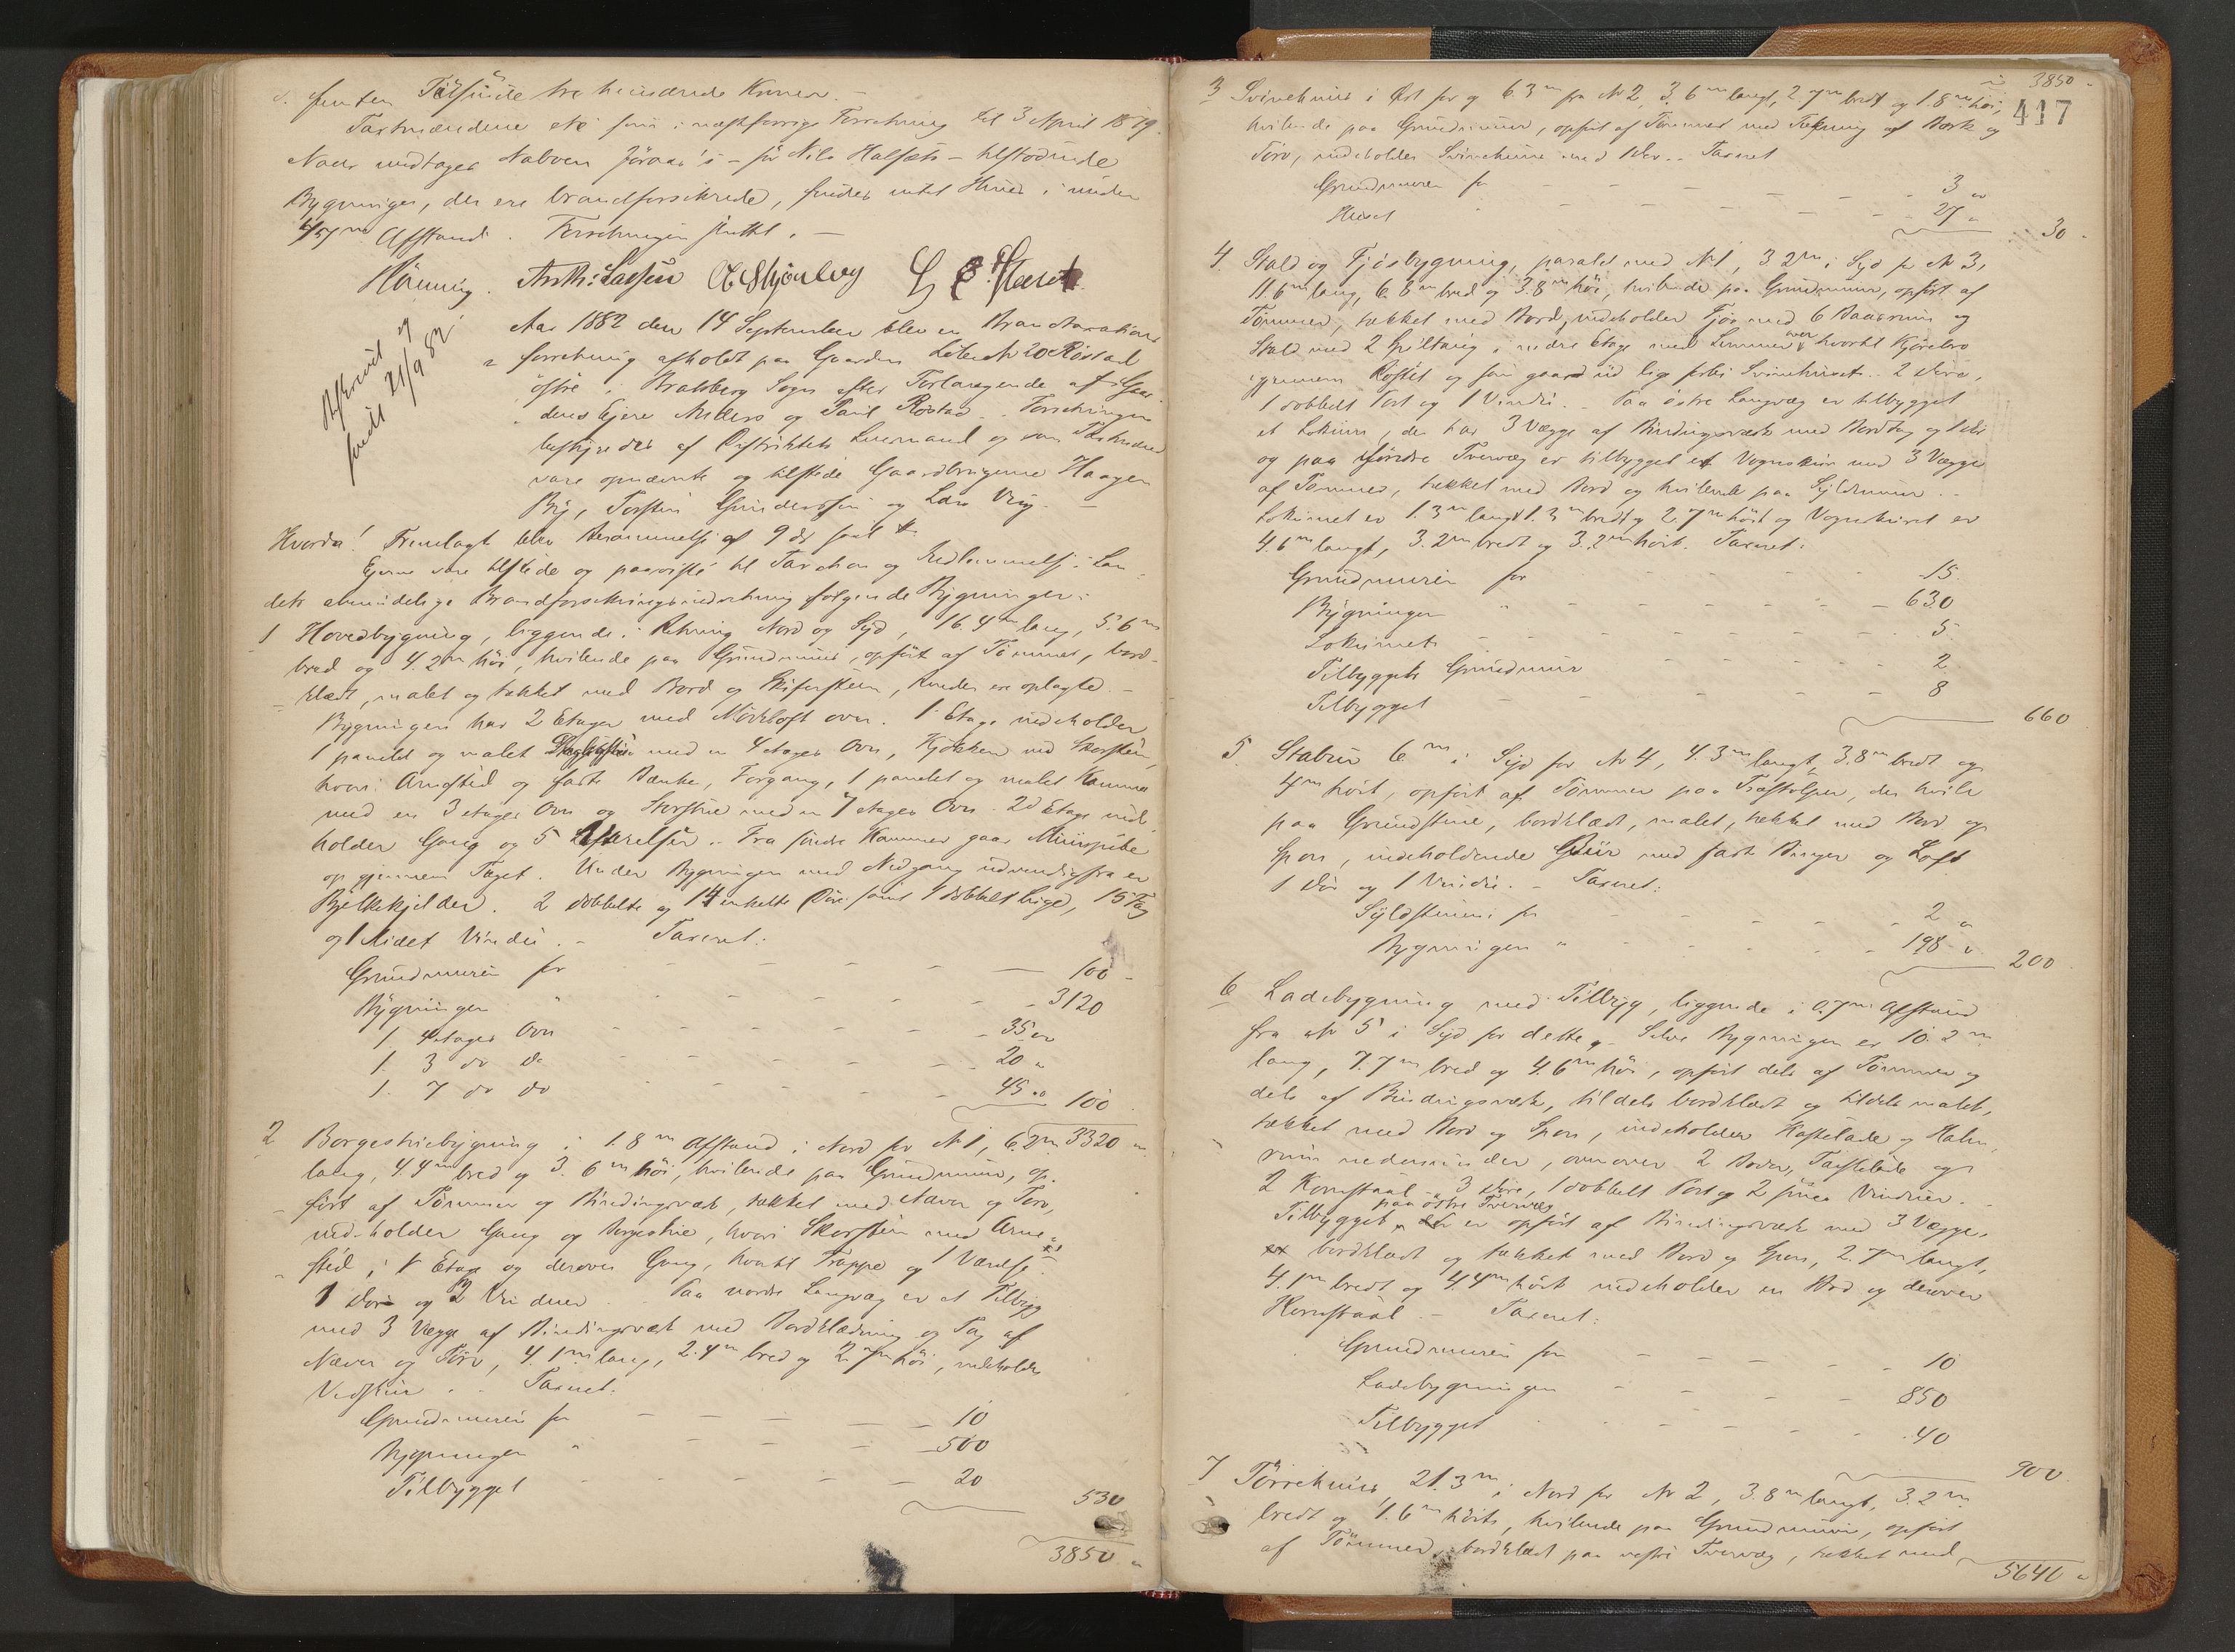 Totusinde tre hundrede Kroner. –
Taxtmændene etc som i næstforrige Forretning til 3 April 1879.
Naar undtages Naboen – for Nils Halsets – tilstødende
Bygninger, der ere brandforsikrede, findes intet Huus i mindre
Afstand. Forretningen sluttet. –
Hörning. Anth: Larssen
Afskrevet og
sendt 21/9 82.
Aar 1882 den 14 September blev en Brandtaxations
forretning afholdt paa Gaarden Löbe No 20 Röstad
östre i Sogn efter Forlangende af Gaar
dens Ejere Anders og Paul Röstad. Forretningen
bestyredes af Distriktets Lensmand og som Taxtmænd
vare opnævnte og tilstede Gaardbrugerne Haagen
By, Torsten Gundersen og Lars Vig. –
Hvorda! Fremlagt blev Berammelse af 9 ds saal
Ejerne vare tilstede og paaviste til Taxation og Indlemmelse i Lan
dets almindelige Brandforsikringsindretning følgende Bygninger:
1 Hovedbygning, liggende i Retning Nord og Syd, 16.4 m lang, 5.6 m
bred og 4.2 m höi, hvilende paa Grundmuur, opfört af Tömmer, bord
klædt, malet og tækket med Bord og Skifersteen,
Bygningen har 2 Etager med Mörkloft over. 1 Etage indeholder
1 panelet og malet Dagligstue med en 4 etages Ovn, Kjökken med Skorsten,
hvori Arnested og faste Bænke, Forgang, 1 panelet og malet Kammer
med en 3 etages Ovn og Storstue med en 7 etages Ovn. 2d Etage inde
holder Gang og 5 Værelser. – Fra søndre Kammer gaar Muurpibe
op gjennem Taget. Under Bygningen med Nedgang udvendigfra er
Bjelkekjelder. 2 dobbelte og 14 enkelte Döre samt 1 dobbelt 15 Fag
og 1 Vinduer. – Taxeret:
Grundmuren for – – – – – 100 –
Bygningen " – – – – – 3120
1. 4 etages Ovn – – – – 35 "
1. 3 do do – – – – 20 "
1. 7 do do – – – – 45 " 100
2 Borgestuebygning i 1.8 m Afstand i Nord for No 1, 6.2 m 3320 "
lang, 4.4 m bred og 3.6 m höi, hvilende paa Grundmuur, op
fört af Tömmer og Bindingsværk, tækket med Næver og Torv,
indeholder Gang og Borgestue, hvori Skorsten med Arne
sted, i 1 Etage og derover Gang, hvortil Trappe og 1 Værelse.
1 Dör og 2 Vinduer. Paa nordre Langvæg er et Tilbyg
med 3 Vægge af Bindingsværk med Bordklædning og Tag af
Næver og Törv, 4.1 m lang, 2.4 m bred og 2.7 m höi, indeholder
Vedskuur. – Taxeret:
Grundmuren for – – – – – 10
Bygningen " – – – – 500
Tilbygget – – – – – 20
530
3850 "
3850 –
417
3 Svinehuus i Öst for og 6.3 m fra No 2, 3.6 m langt, 2.7 m bredt og 1.8 m höi,
hvilende paa Grundmuur, opfört af Tömmer med Tækning af Bark og
Törv, indeholder Svinehuus med 1 Dör. – Taxeret
Grundmuren for – – – – – 3 "
Huset – – – – – 27 "
30 –
4. Stald og Fjösbygning, paralel med No 1, 32 m i Syd for No 3,
11.6 m lang, 6.8 m bred og 3.8 m höi, hvilende paa Grundmuur, opfört af
Tömmer, tækket med Bord, indeholder Fjös med 6 Baaserum og
Stald med 2 Spiltaug i nedre Etage med Lemmer over hvortil Kjörebro
2 Döre,
1 dobbelt Port og 1 Vindu. – Paa östre Langvæg er tilbygget
et Lokum, der har 3 Vægge af Bindingsværk med Bordtag og 1 Dör
og paa söndre Tvervæg er tilbygget et Vognskur med 3 Vægge
af Tömmer, tækket med Bord og hvilende paa Syldmuur. –
Lokumet er 1.3 m langt 1.3 m bredt og 2.7 m höit og Vognskuret er
4.6 m langt, 3.2 m bredt og 3.2 m höit. Taxeret:
Grundmuren for – – – – 15
Bygningen " – – – – 630
Lokumet – – – – 5
Tilbyggets Grundmuur – – – – 2
Tilbygget – – – – 8
660
5. Stabur 6 m i Syd for No 4, 4.3 m langt, 3.8 m bredt og
4 m höit, opfört af Tömmer paa Træstolper, der hvile
paa Grundstene, bordklædt, malet, tækket med Bord og
Spon, indeholdende Buur med faste Binger og Loft
1 Dör og 1 Vindu. – Taxeret:
Syldstenene for – – – – 2 "
Bygningen " – – – – 198 "
200
6 Ladebygning med Tilbyg, liggende i 0.7 m Afstand
fra No 5 i Syd for dette. – Selve Bygningen er 10.2 m
lang, 7.7 m bred og 4.6 m höi, opfört dels af Tömmer og
dels af Bindingsværk, tildels bordklædt og tildels malet,
tækket med Bord og Spon, indeholder Kastelade og Halm
rum nedenunder, ovenover 2 Broer, Tærskelade og
2 Kornstaal – 3 Döre, 1 dobbelt Port og 2 smaa Vinduer. –
Tilbygget paa östre Tvervæg er opfört af Bindingsværk med 3 Vægge,
bordklædt og tækket med Bord og Spon, 2.7 m langt,
4.1 m bredt og 4.4 m höit indeholder en Bod og derover
Kornstaal. – Taxeret:
Grundmuren for – – – – 10
Ladebygningen – – – – 850
Tilbygget – – – – 40
900
7 Törrehuus 21.3 m i Nord for No 2, 3.8 m langt, 3.2 m
bredt og 1.6 m höit, hvilende paa Grundmuur, opfört
af Tömmer, bordklædt paa vestre Tvervæg, tækket med
5640 "